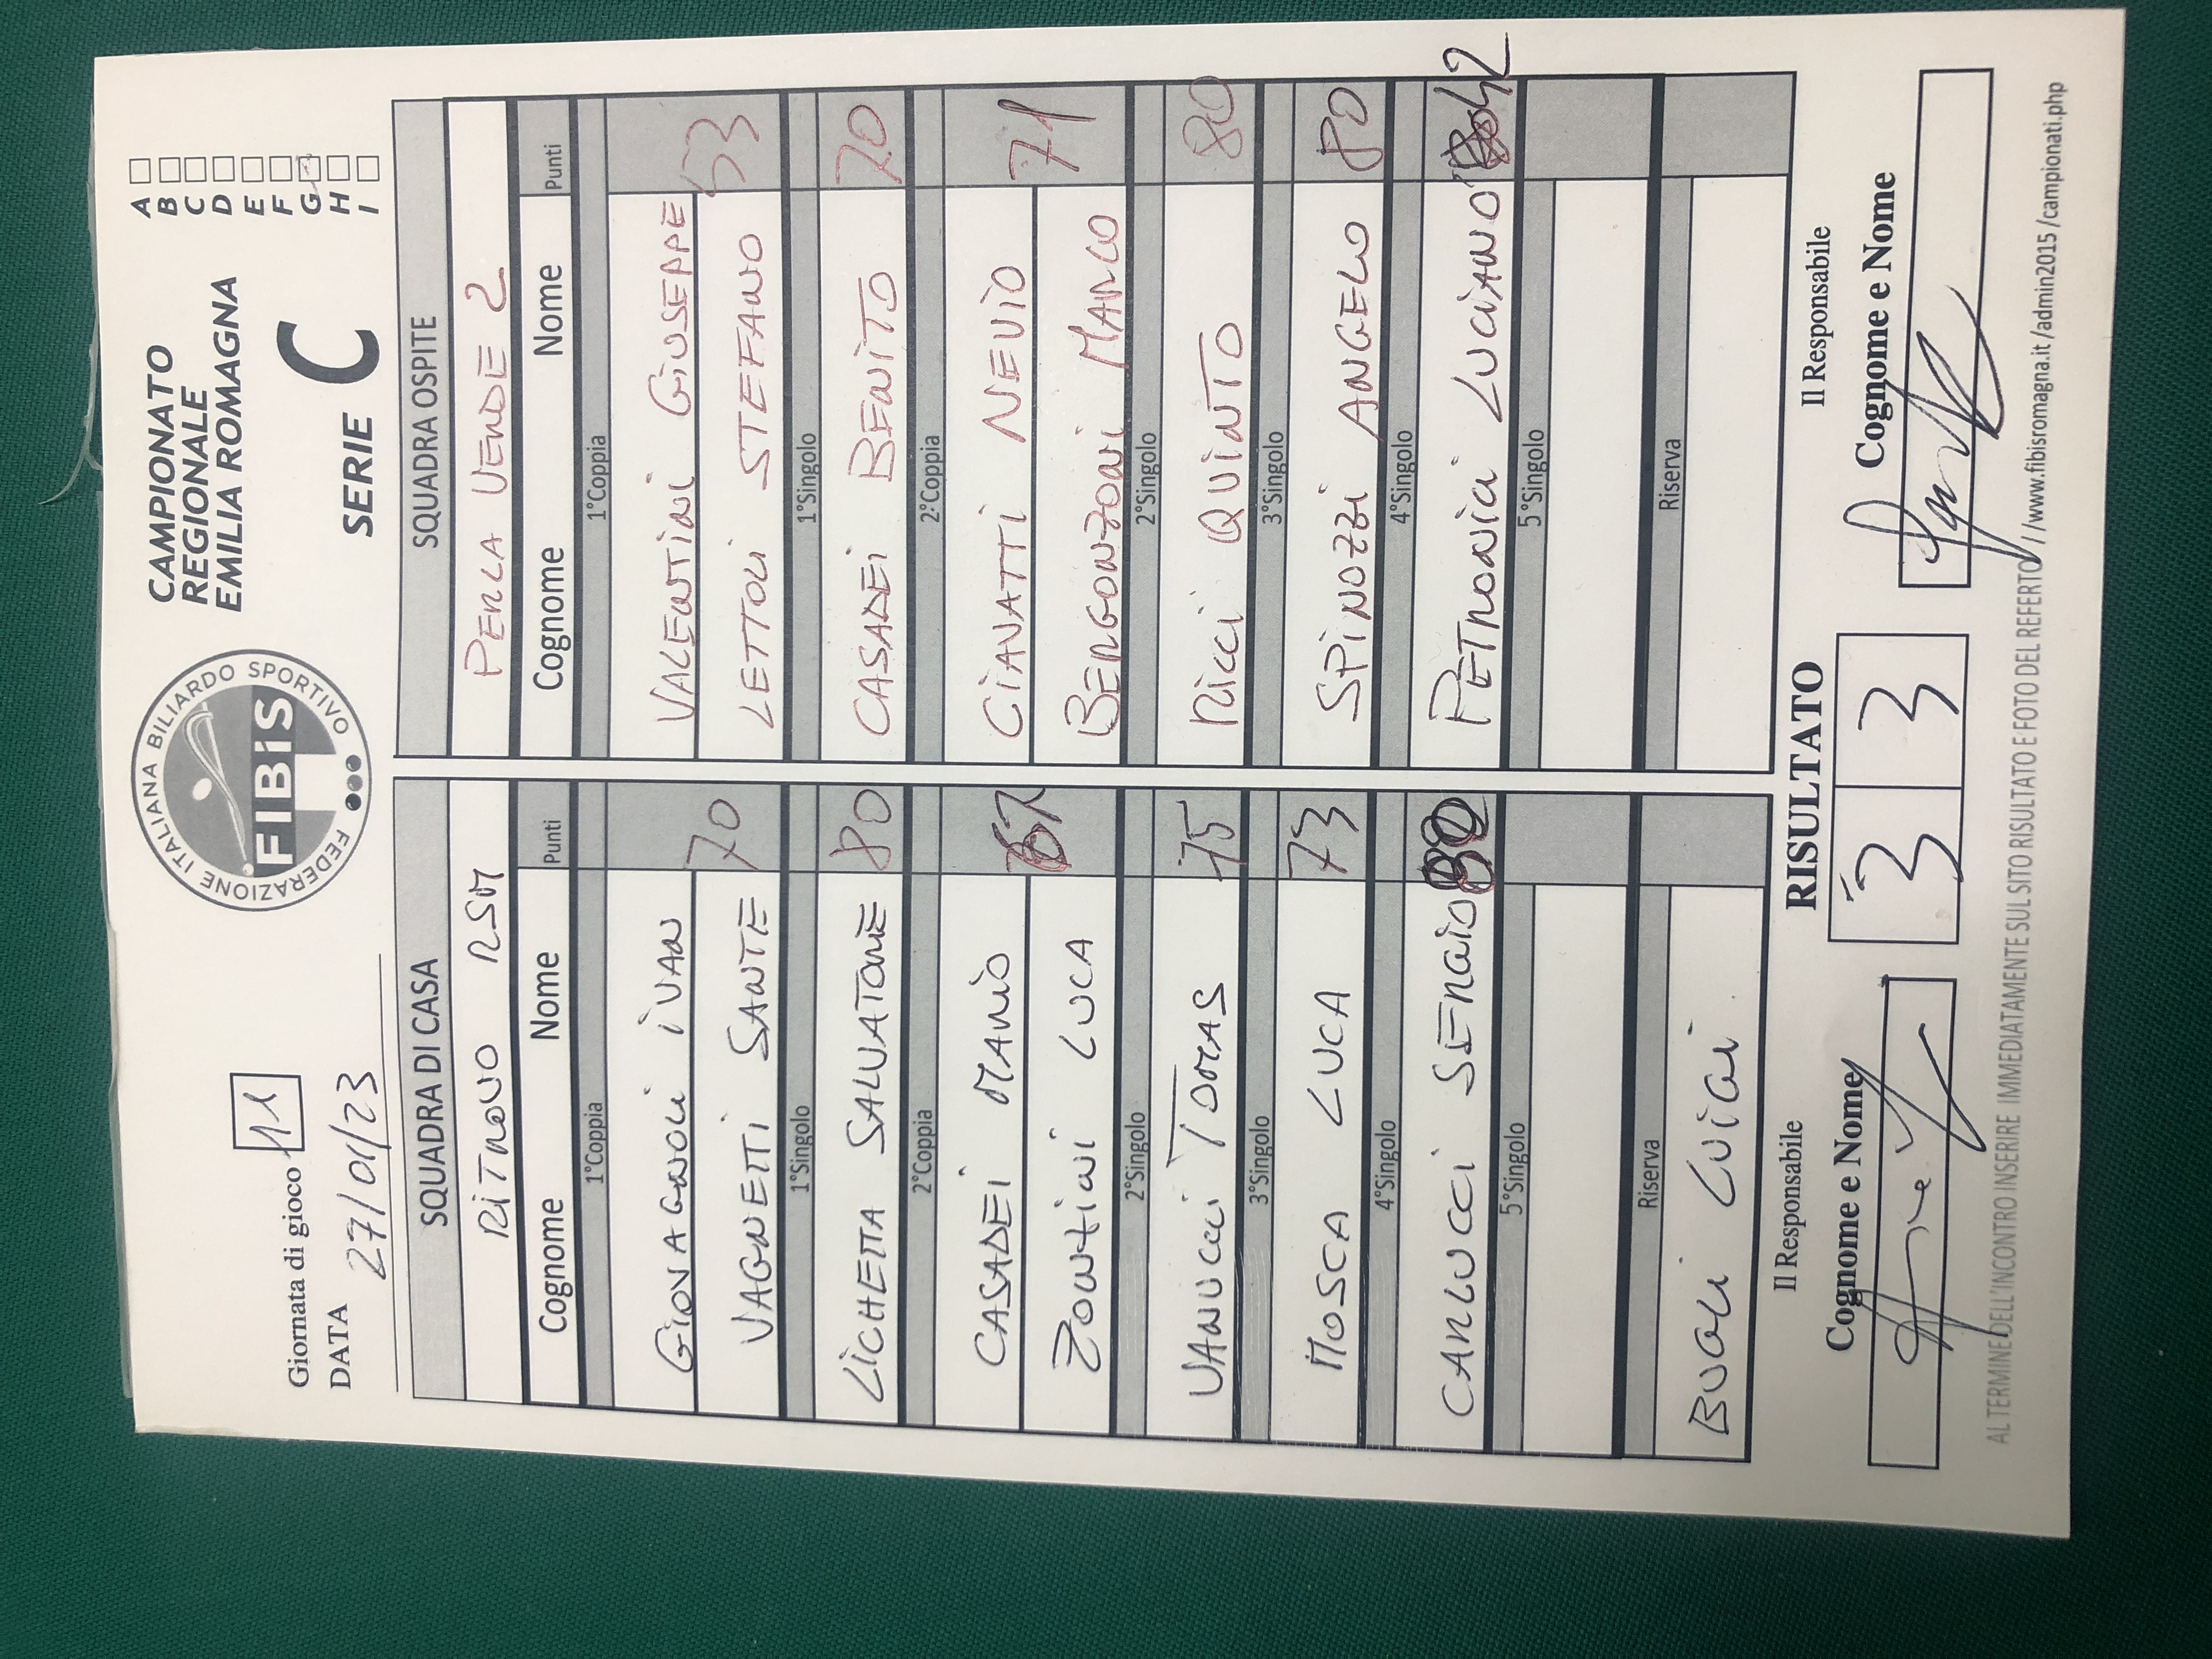 Giornata di gioco 11
DATA 27/01/23
FEDERAZIONE ITALIANA BILIARDO SPORTIVO
FIBiS
CAMPIONATO
REGIONALE
EMILIA ROMAGNA
SERIE C
A
B
C
D
E
F
G
H
I
SQUADRA DI CASA
RiTROVO RSM
Cognome Nome Punti
1°Coppia
GiOVAGNOLi iVAN
VAGNETTi SANTE 70
1°Singolo
LiCHETTA SALVATORE 80
2°Coppia
CASADEI MARiO
ZONTiNi LUCA
2°Singolo
VANUCCi TOMAS 75
3°Singolo
MOSCA LUCA 73
4°Singolo
CARLUCCi SERGIO 80
5°Singolo
Riserva
BUOLi LUiGi
SQUADRA OSPITE
PERLA VERDE 2
Cognome Nome Punti
1°Coppia
VALENTiNi GiUSEPPE
LETTOLi STEFANO 53
1°Singolo
CASADEi BENiTO 70
2°Coppia
CiAVATTi NEViO 71
BERGONZONi MARCO
2°Singolo
RiCCi QUiNTO 80
3°Singolo
SPiNOZZi ANGELO 80
4°Singolo
PETRONiCi LUCiANO
5°Singolo
Riserva
Il Responsabile
Cognome e Nome
RISULTATO
3 3
Il Responsabile
Cognome e Nome
AL TERMINE DELL'INCONTRO INSERIRE IMMEDIATAMENTE SUL SITO RISULTATO E FOTO DEL REFERTO //www.fibisromagna.it/admin2015/campionati.php